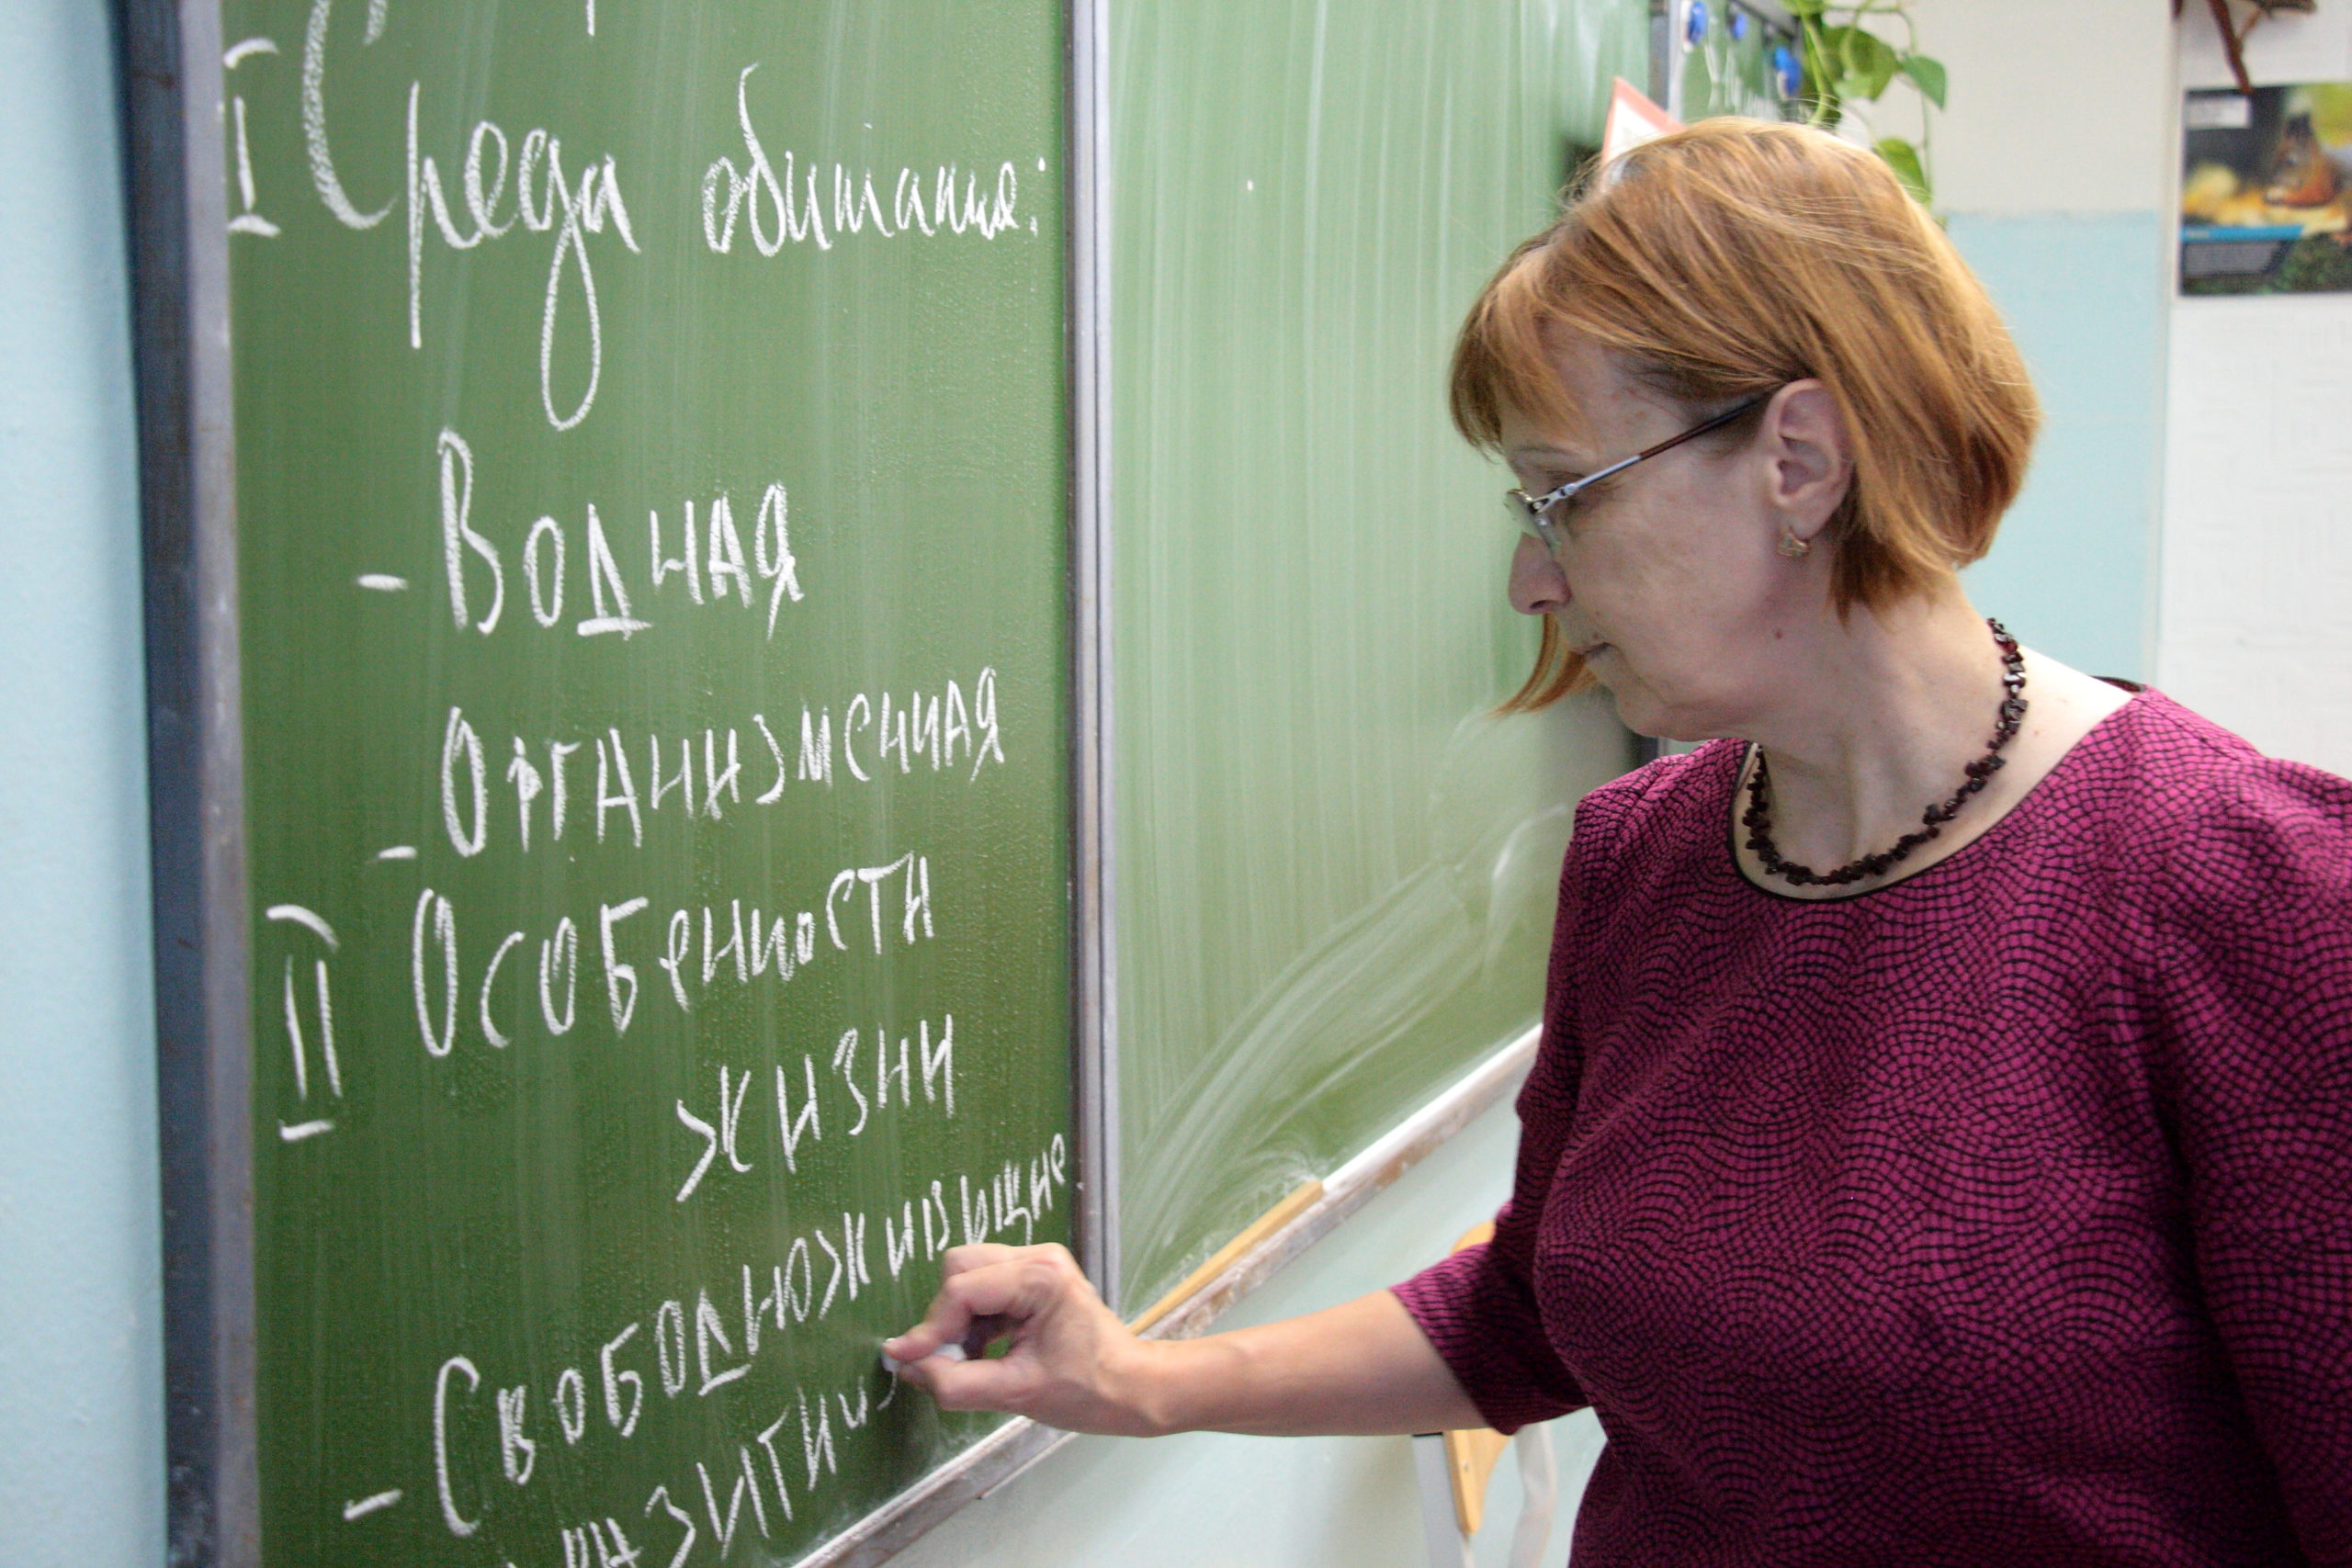 I Среда обитания:
- Водная
- Организменная
II Особенности
жизни
- Свободноживущие